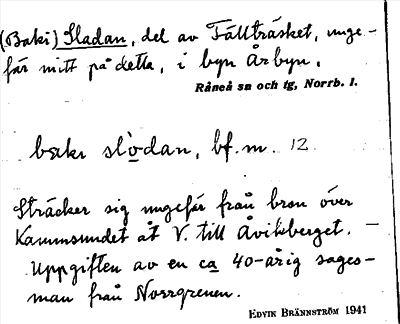 (Baki) Sladan, del av Fällträsket, unge-
fär mitt på detta, i byn Årbyn.
Råneå sn och tg, Norrb. l.
baki slòdan, bf. m. 12
Sträcker sig ungefär från bron över
Kammsundet åt V. till Åviksberget. —
Uppgiften av en ca 40-årig sages-
man från Norrgrenen.
EDVIN BRÄNNSTRÖM 1941